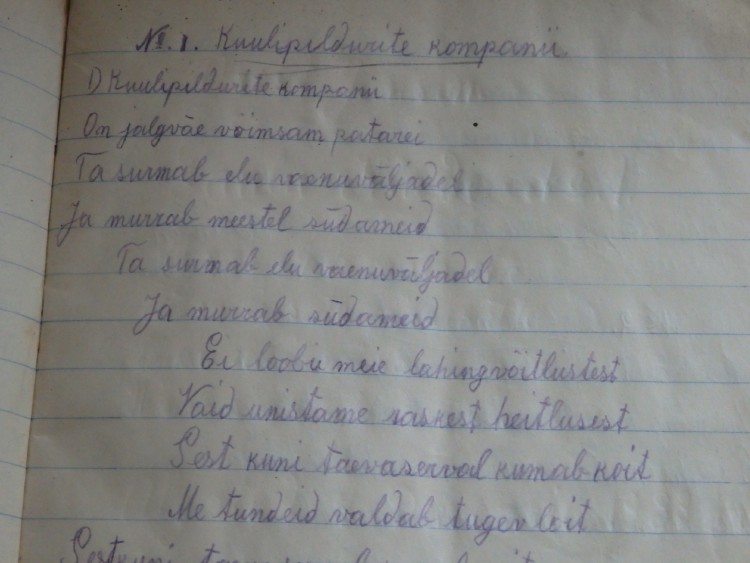 № 1. Kuulipildurite kompanii
1) Kuulipildurite kompanii
On jalgväe võimsam patarei
Ta surmab elu vaenuväljadel
Ja murrab meestel südameid
Ta surmab elu vaenuväljadel
Ja murrab südameid
Ei loobu meie lahingvõitlustest
Vaid unistame raskest heitlusest
Sest kuni taevaserval kumab koit
Me tundeid valdab tugev loit
Sest kuni